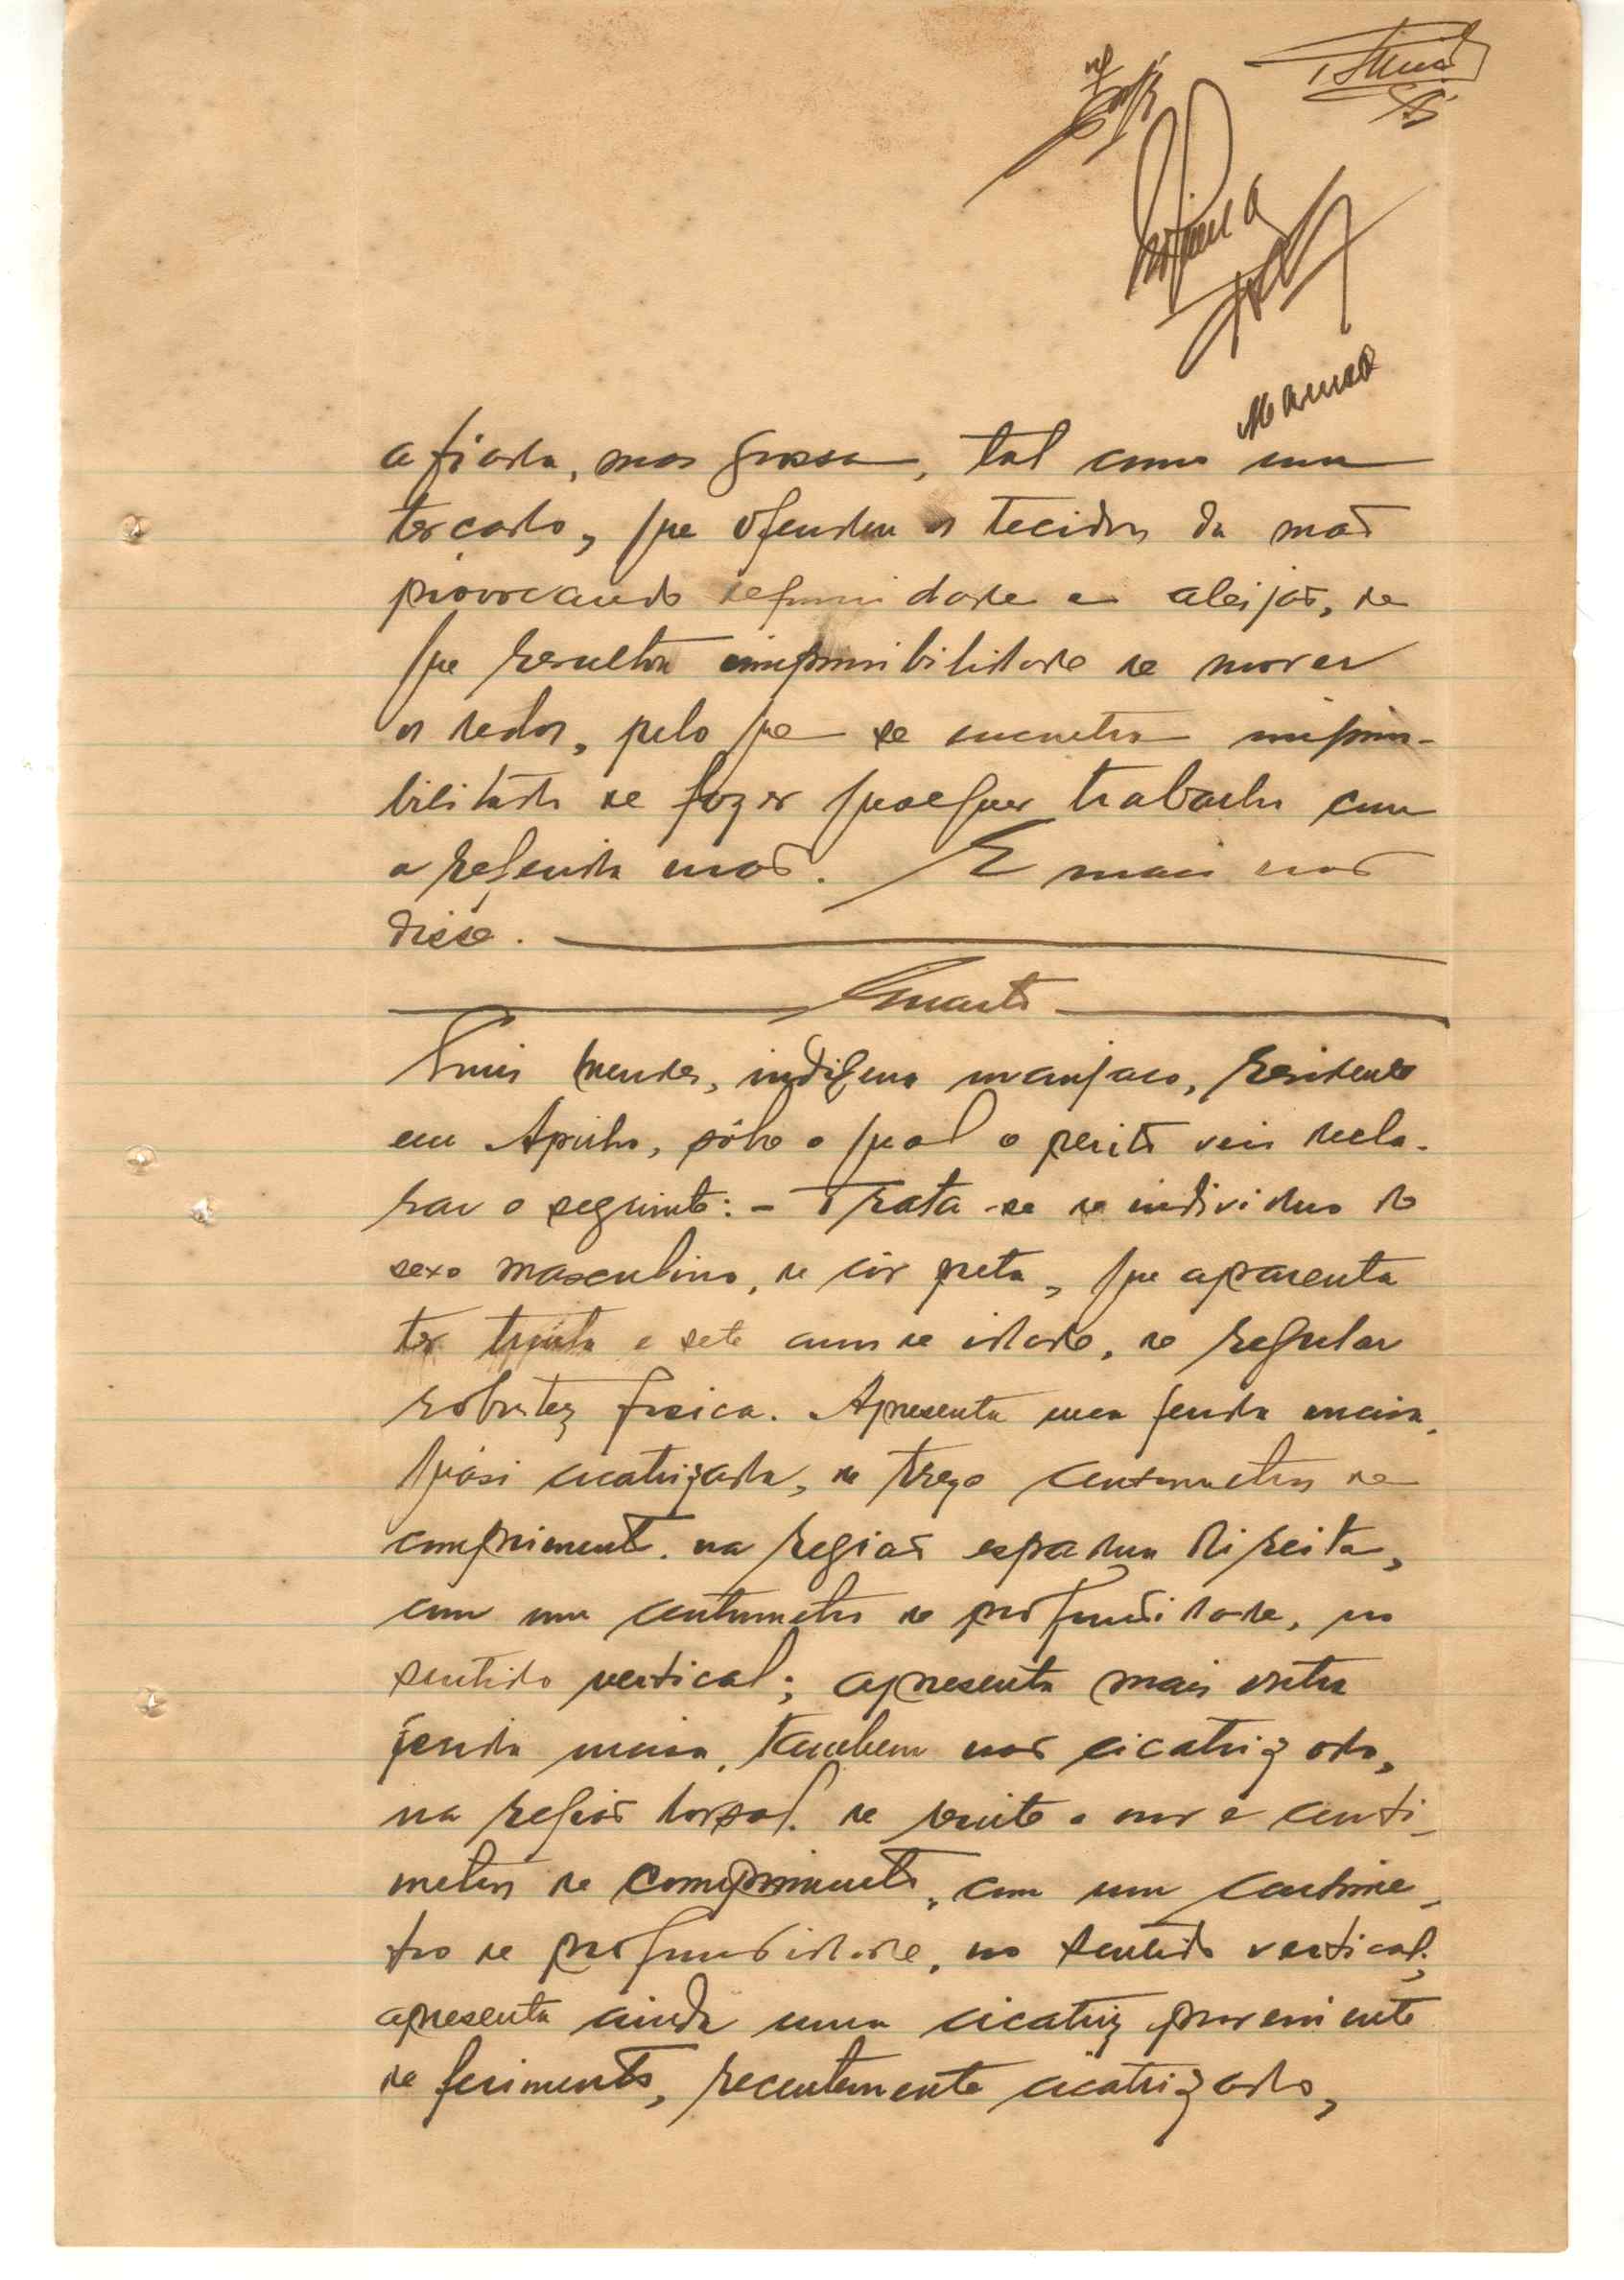 afiada, mas grossa, tal como um
terçado, que ofendeu os tecidos da mão
provocando deformidade e aleijão, de
que resultou impossibilidade de mover
os dedos, pelo que se encontra impossi-
bilitado de fazer qualquer trabalho com
a referida mão. E mais não
disse.
Quarto
Luis Mendes, indigena manjaco, residente
em Apilho, sôbre o qual o perito veiu decla-
rar o seguinte: - Trata-se de individuo do
sexo masculino, de côr preta, que aparenta
ter trinta e sete anos de idade, de regular
robustez fisica. Apresenta uma fenda incisa,
quási cicatrizada, de treze centimetros de
comprimento, na região espadua direita,
com um centimetro de profundidade, no
sentido vertical; apresenta mais outra
fenda incisa, tambem não cicatrizada,
na região dorsal, de vinte e nove centi-
metros de comprimento, com um centime-
tro de profundidade, no sentido vertical;
apresenta ainda uma cicatriz proveniente
de ferimento, recentemente cicatrizado,